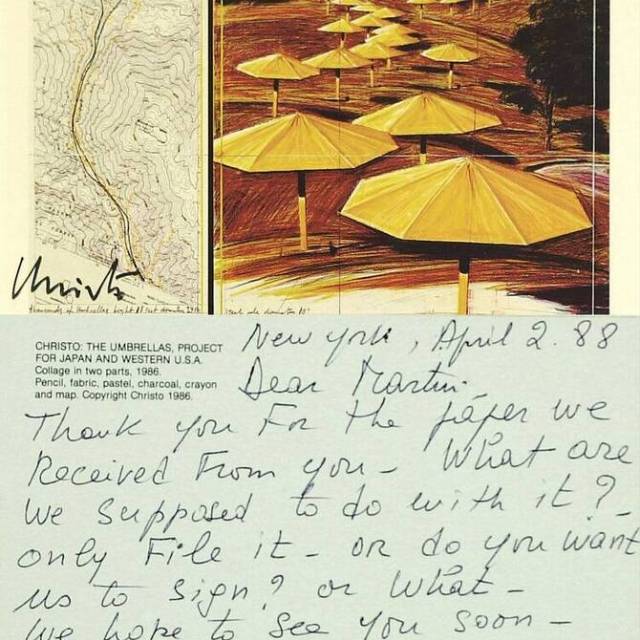 Christo
CHRISTO: THE UMBRELLAS, PROJECT
FOR JAPAN AND WESTERN U.S.A.
Collage in two parts, 1986.
Pencil, fabric, pastel, charcoal, crayon
and map. Copyright Christo 1986.
New York, April 2. 88
Dear Martin.
Thank you For the paper we
Received From you - What are
we supposed to do with it? -
only File it - or do you want
us to sign? or What -
We hope to see you soon -